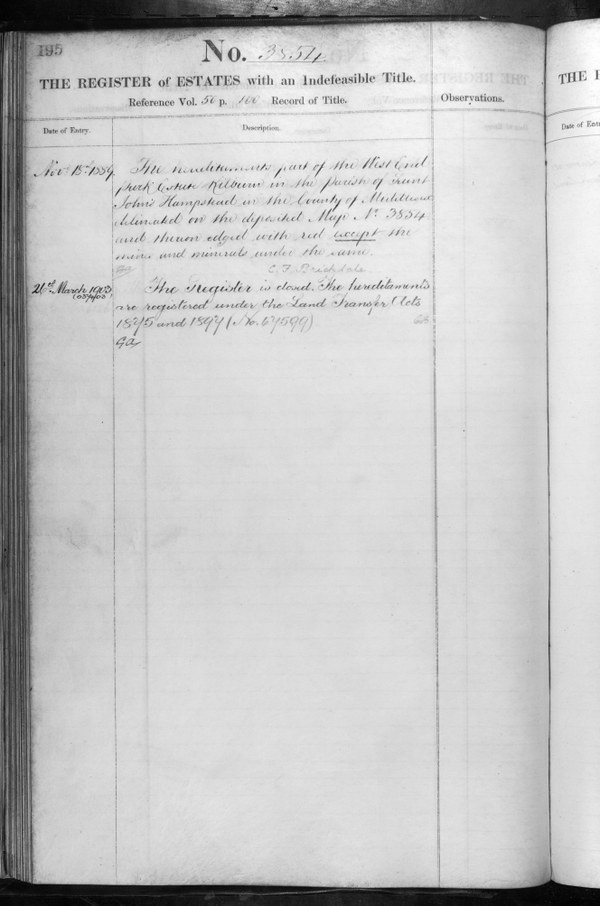 195
No. 3854
THE REGISTER of ESTATES with an Indefeasible Title.
Reference Vol. 50 p. 100 Record of Title.
Observations.
Date of Entry.
Description.
Nov 15th 1889. The hereditaments part of the West End
Park Estate Kilburn in the Parish of Saint
John Hampstead in the County of Middlesex
delineated on the deposited Map No. 3854
and thereon edged with red except the
mines and minerals under the same.
26th March 1903 The Register is closed. The hereditaments
are registered under the Land Transfer Acts
1875 and 1897 (No. 67599)
THE R
Date of Entr